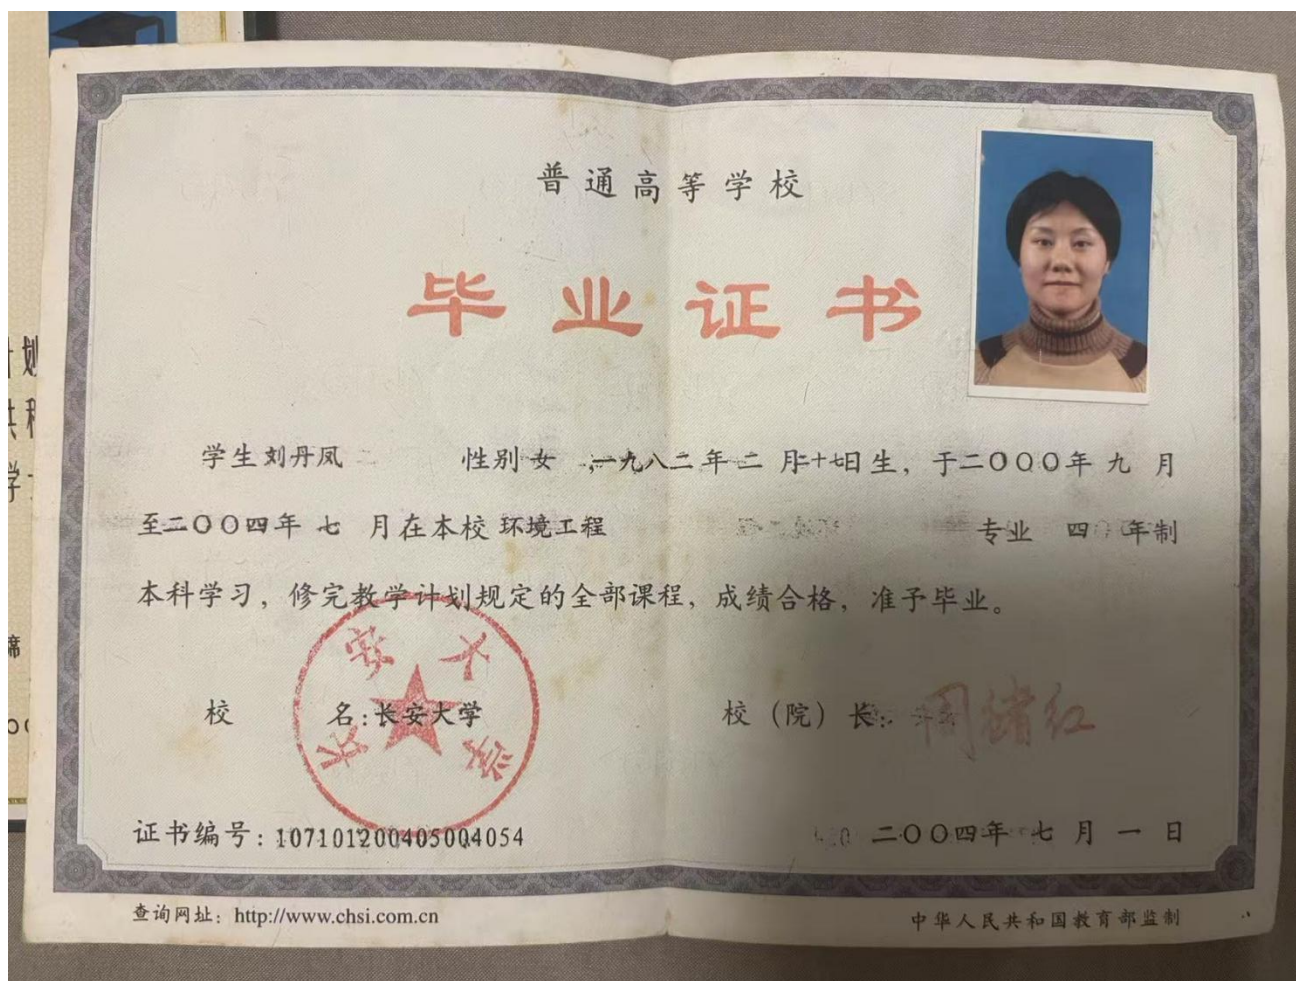 普通高等学校
毕业证书
学生刘丹凤 性别女 ,一九八二年二月二十七日生，于二〇〇〇年九月
至二〇〇四年七月在本校环境工程 专业 四年制
本科学习，修完教学计划规定的全部课程，成绩合格，准予毕业。
长安大学
校 名:长安大学 校（院）长: 周绪红
证书编号: 107101200405004054 二〇〇四年七月一日
查询网址: http://www.chsi.com.cn 中华人民共和国教育部监制
划
学
席